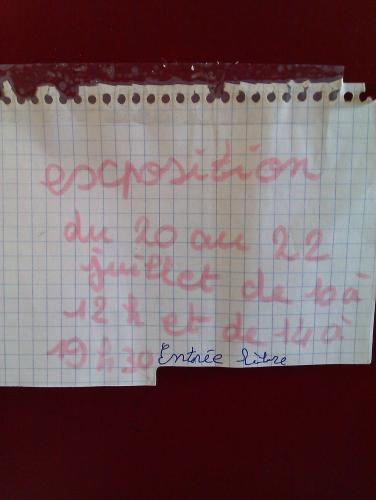 exposition
du 20 au 22
juillet de 10 à
12 h et de 14 à
19 h 30 Entrée libre